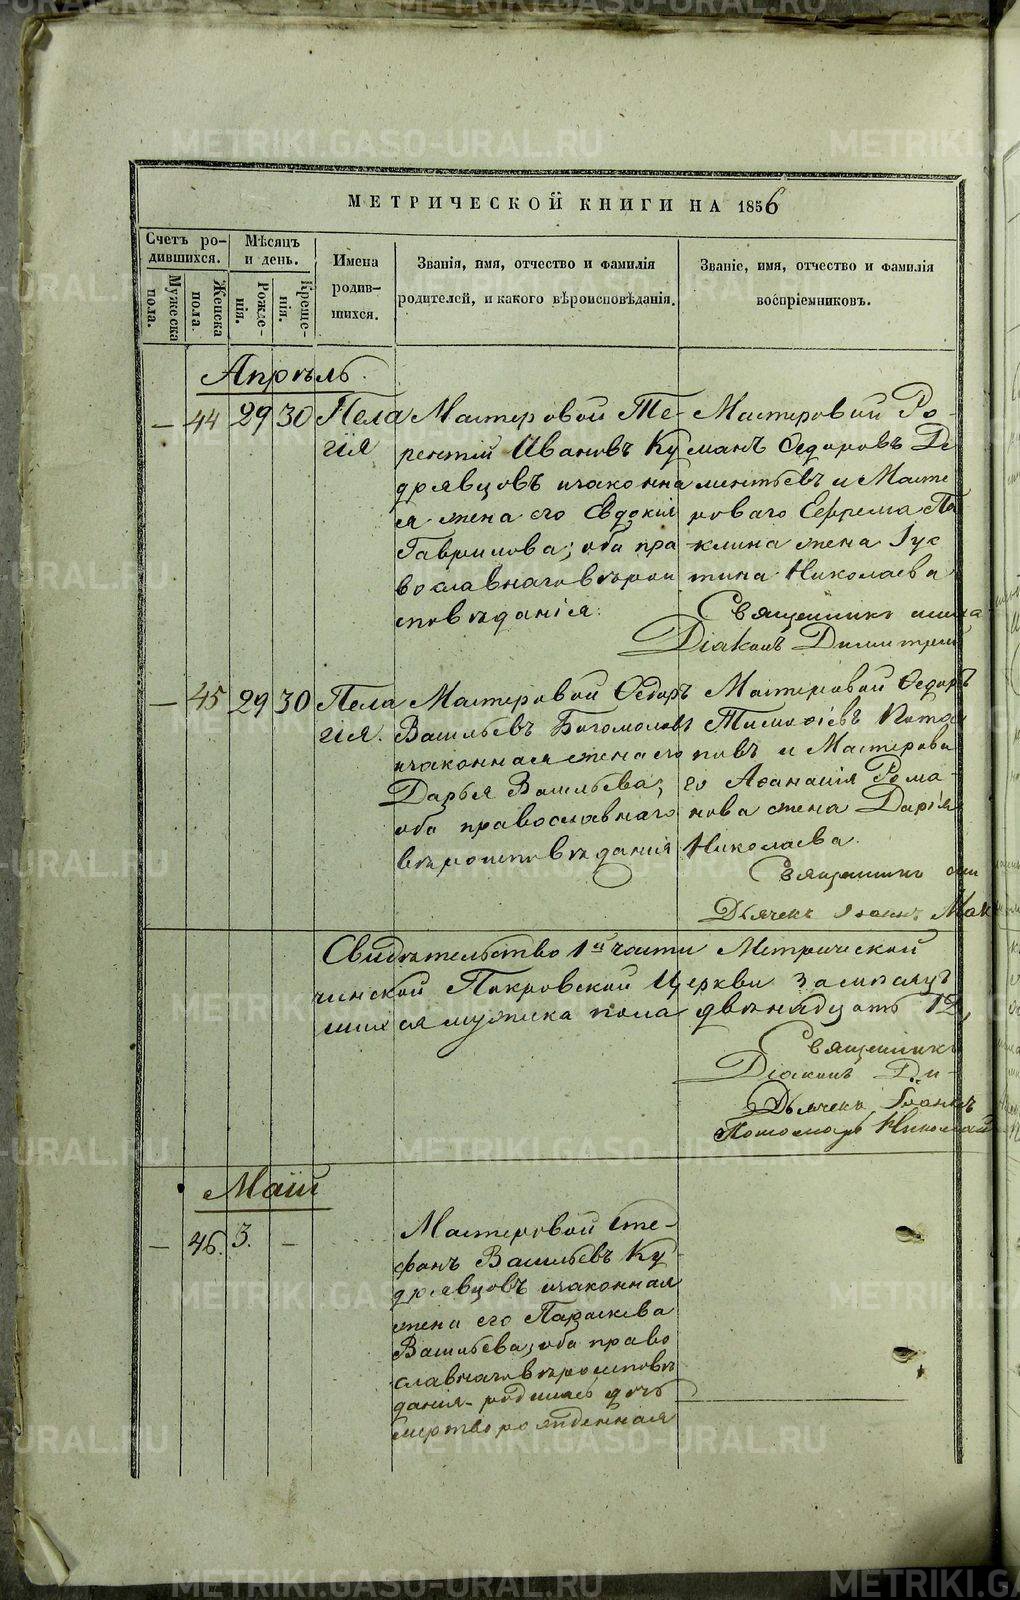 МЕТРИЧЕСКОЙ КНИГИ НА 1856
Счетъ ро-
дившихся.
Мѣсяцъ
и день.
Имена
родив-
шихся.
Званія, имя, отчество и фамилія
родителей, и какого вѣроисповѣданія.
Званіе, имя, отчество и фамилія
воспріемниковъ.
Мужеска
пола.
Женска
пола
Рожде-
нія.
Креще-
нія.
Апрѣль.
— 44 29 30 Пела
гія
Мастеровой Те-
рентій Ивановъ Ку
дрявцовъ и законна
я жена его Евдокія
Гаврилова; оба пра
вославнаго вѣрои
сповѣданія.
Мастеровой Ро-
манъ Ѳедоровъ Де
ментьевъ и Масте
роваго Ефрема Па
клина жена Іус
тина Николаева
Священникъ
Діаконъ Димитрій
— 45 29 30 Пела
гія.
Мастеровой Ѳедоръ
Васильевъ Богомоловъ
и законная жена его
Дарья Васильева;
оба православнаго
вѣроисповѣданія
Мастеровой Ѳедоръ
Тимоѳіевъ Пота
повъ и Мастерова
го Аѳанасія Рома-
нова жена Дарія
Николаева.
Священникъ
Дьячекъ Іоаннъ Мак
Свидѣтельство 1й части Метрической
чинской Покровской Церкви за мѣсяцъ
шихся мужска пола двѣнадцать 12,
Священникъ
Діаконъ Ди-
Дьячекъ Іоаннъ
Пономарь Николай
Маій
— 46. 3. —
Мастеровой Сте-
фанъ Васильевъ Ку-
дрявцовъ и законная
жена его Параскева
Васильева; оба право
славнаго вѣроисповѣ
данія - родилась дочь
мертворожденная
METRIKI.GASO-URAL.RU